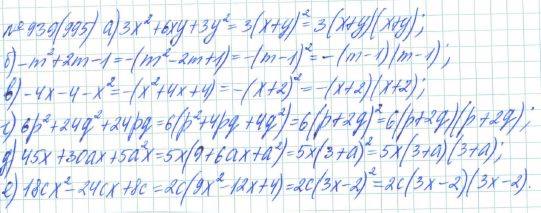 №939(995) а) 3x²+6xy+3y²=3(x+y)²=3(x+y)(x+y);
б) -m²+2m-1=-(m²-2m+1)=-(m-1)²=-(m-1)(m-1);
в) -4x-4-x²=-(x²+4x+4)=-(x+2)²=-(x+2)(x+2);
г) 6p²+24q²+24pq=6(p²+4pq+4q²)=6(p+2q)²=6(p+2q)(p+2q);
д) 45x+30ax+5a²x=5x(9+6ax+a²)=5x(3+a)²=5x(3+a)(3+a);
е) 18cx²-24cx+8c=2c(9x²-12x+4)=2c(3x-2)²=2c(3x-2)(3x-2).